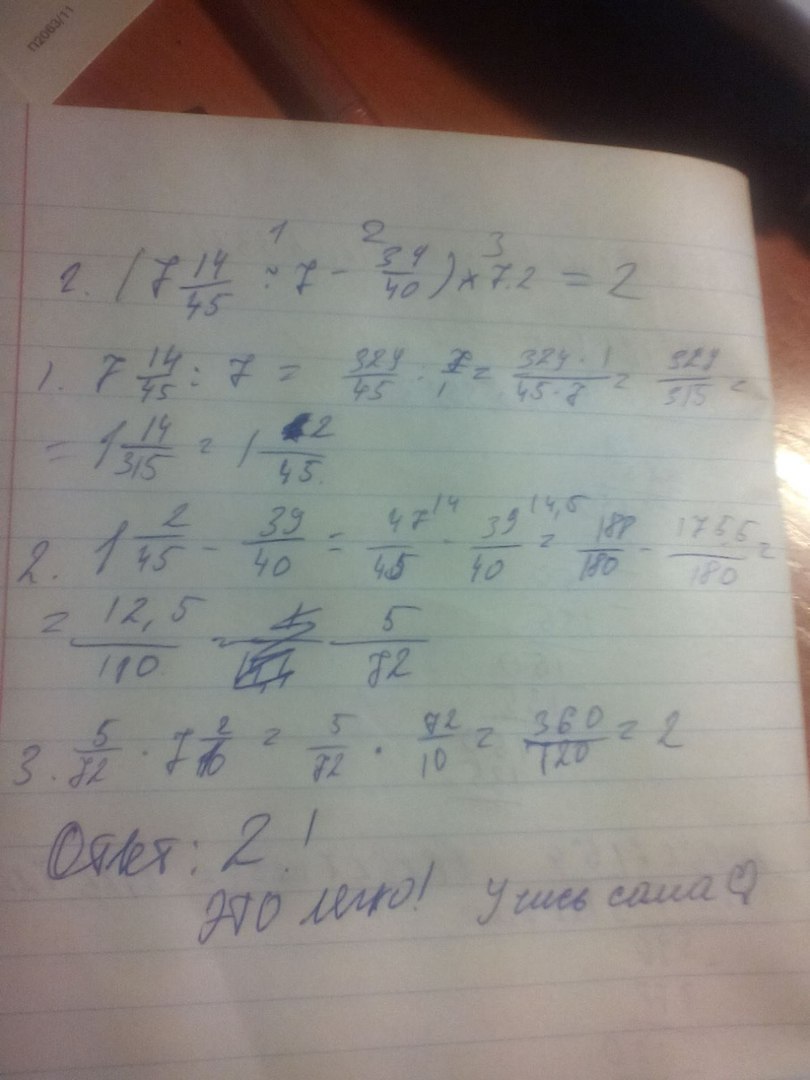 П2063/11
1 2 3
2. (7 14/45 : 7 - 39/40) × 7.2 = 2
1. 7 14/45 : 7 = 329/45 : 7/1 = 329 · 1/45 · 7 = 329/315 =
= 1 14/315 = 1 2/45.
2. 1 2/45 - 39/40 = 47/45 - 39/40 = 188/180 - 175,5/180 =
= 12,5/180 = 5/72
3. 5/72 · 7 2/10 = 5/72 · 72/10 = 360/720 = 2
Ответ: 2!
Это легко! Учись сама